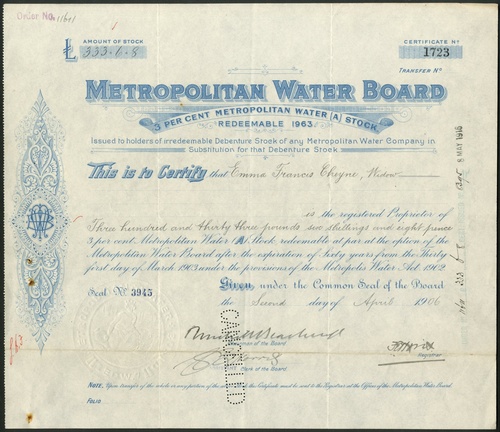 Order No. 11641
AMOUNT OF STOCK
£ 333.6.8
CERTIFICATE No
1723
TRANSFER No
METROPOLITAN WATER BOARD
3 PER CENT METROPOLITAN WATER (A) STOCK
REDEEMABLE 1963
Issued to holders of irredeemable Debenture Stock of any Metropolitan Water Company in
Substitution for that Debenture Stock
This is to Certify that Emma Francis Cheyne, Widow
is the registered Proprietor of
Three hundred and thirty three pounds six shillings and eight pence
3 per cent. Metropolitan Water (A) Stock redeemable at par at the option of the
Metropolitan Water Board after the expiration of Sixty years from the Thirty
first day of March 1903 under the provisions of the Metropolis Water Act 1902
Given under the Common Seal of the Board
Seal No 3945
the Second day of April 1906
Chairman of the Board
Clerk of the Board
Registrar
CANCELLED
NOTE. Upon transfer of the whole or any portion of the above the Certificate must be sent to the Registrar at the Offices of the Metropolitan Water Board
FOLIO
8 MAY 1916